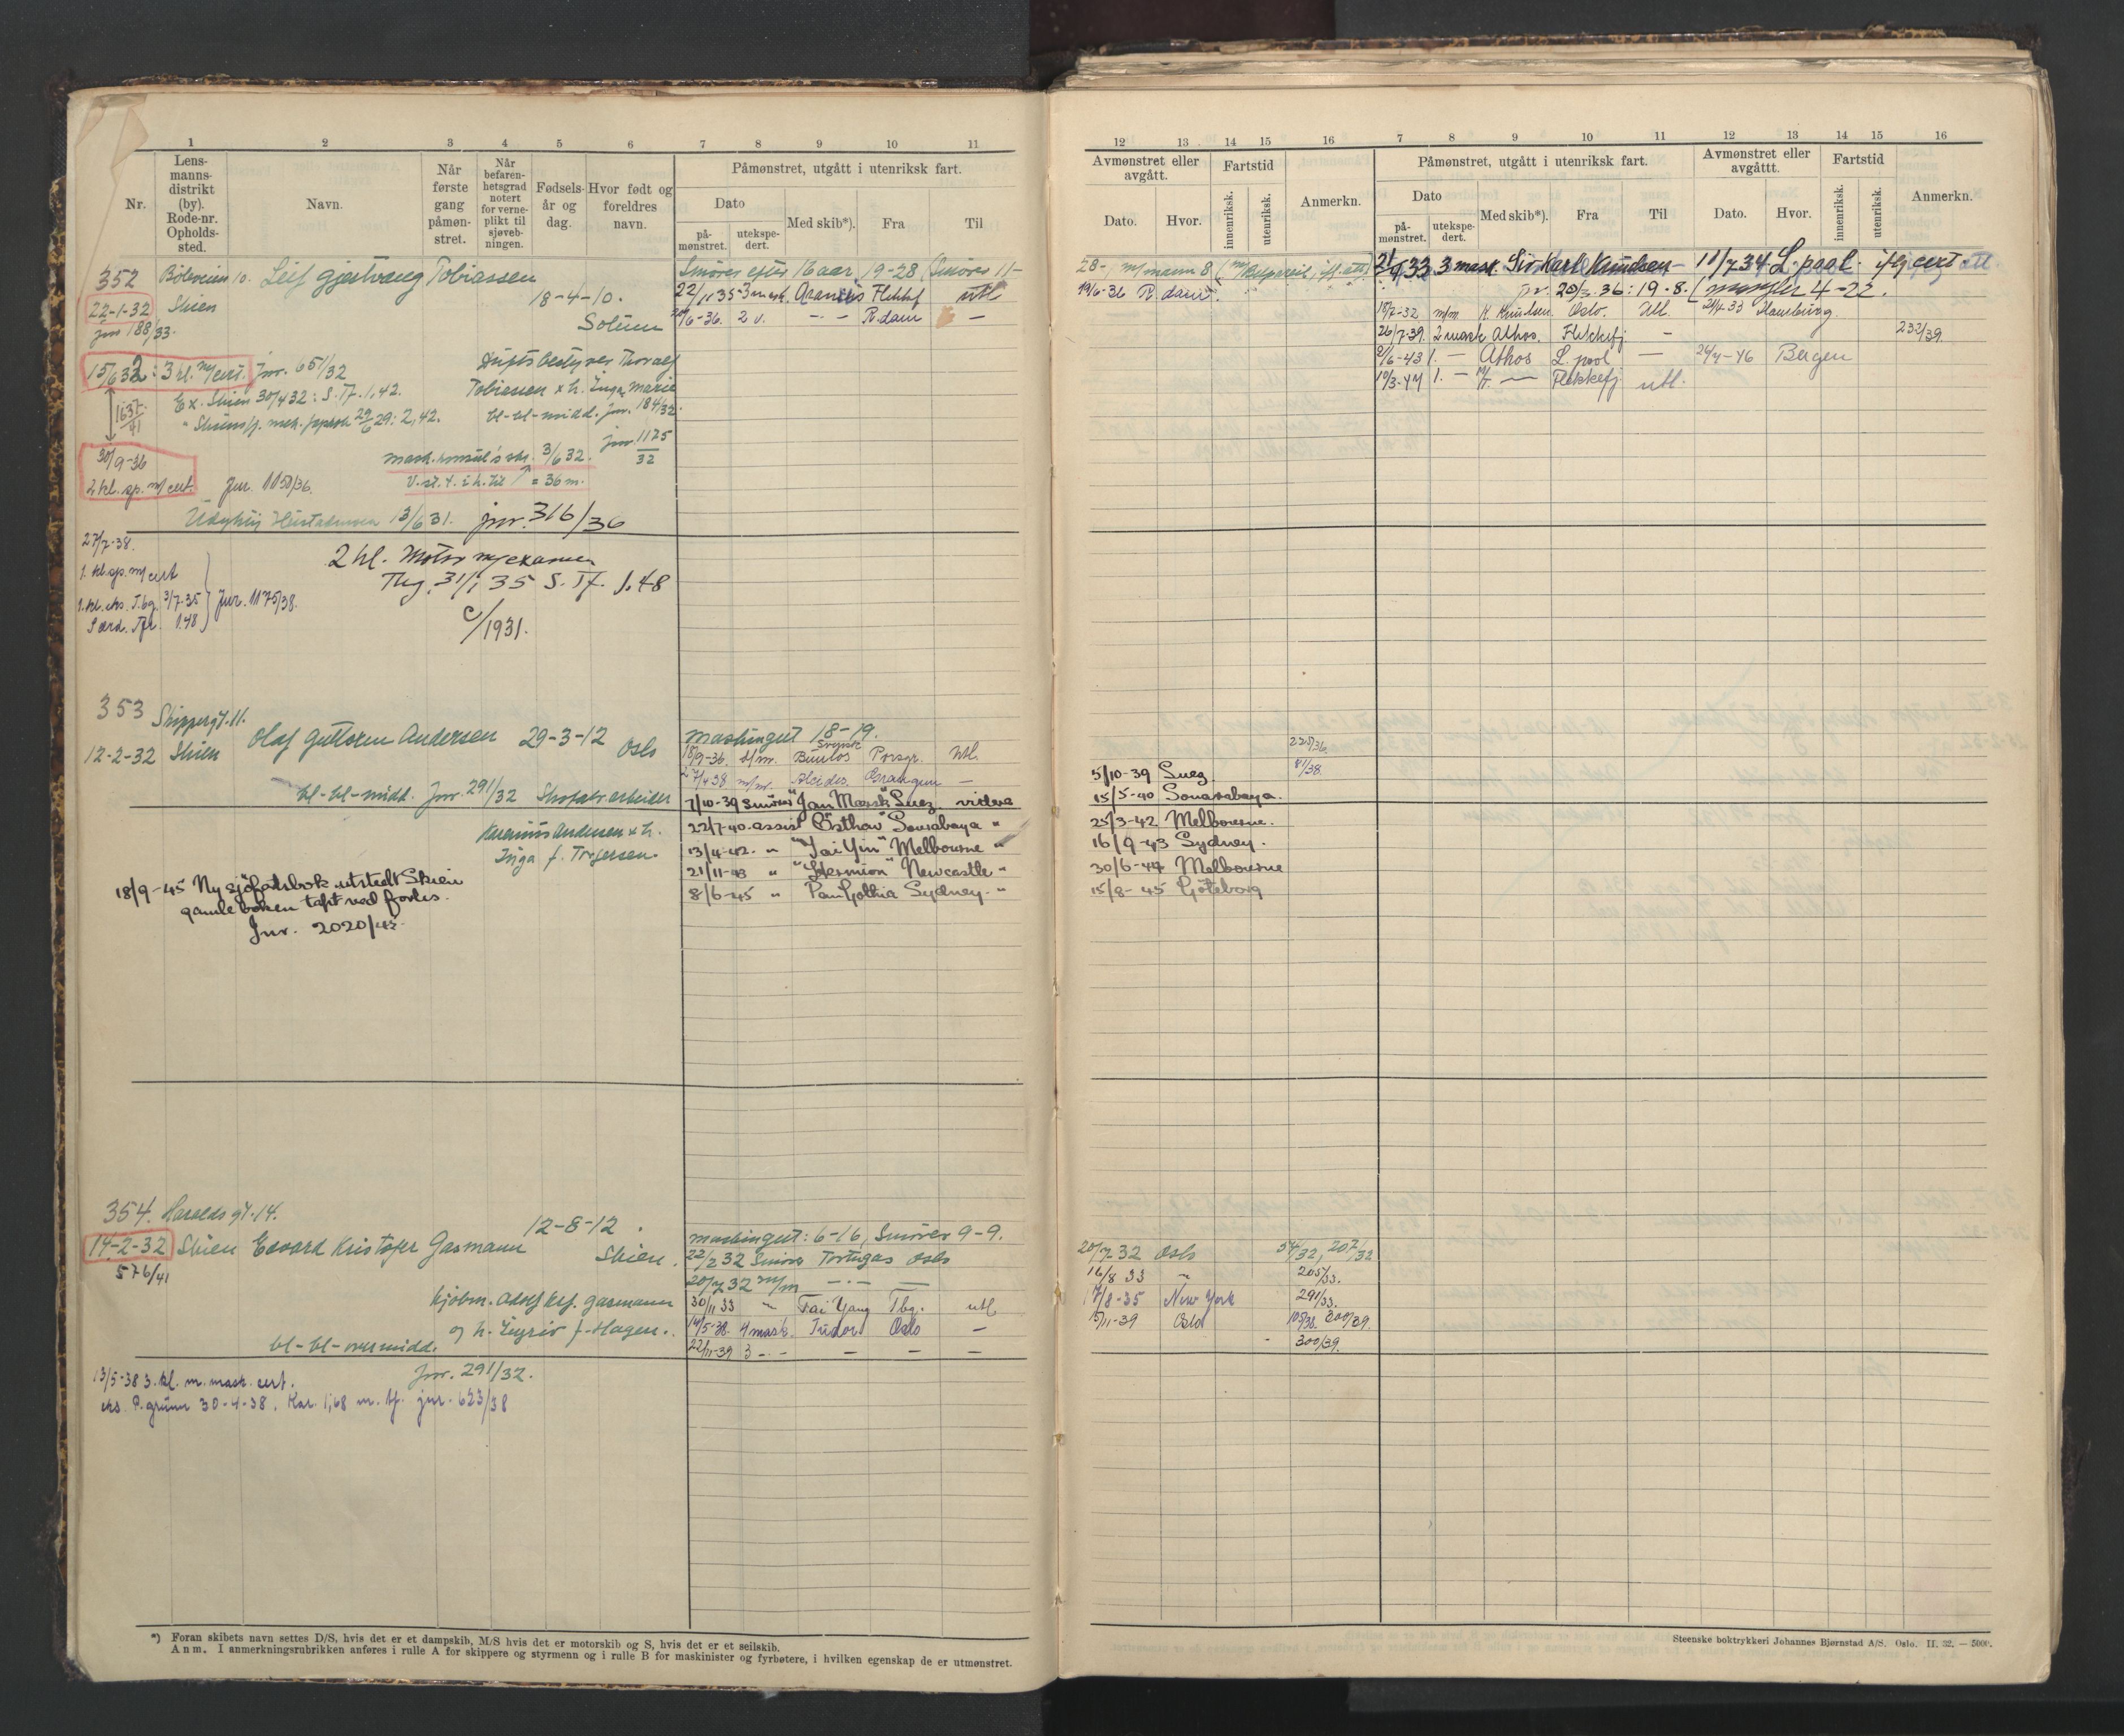 1 2 3 4 5 6 7 8 9 10 11
Nr.
Lens-
manns-
distrikt
(by).
Rode-nr.
Opholds-
sted.
Navn.
Når
første
gang
påmøn-
stret.
Når
befaren-
hetsgrad
notert
for verne-
plikt til
sjøveb-
ningen.
Fødsels-
år og
dag.
Hvor født og
foreldres
navn.
Påmønstret, utgått i utenriksk fart.
Dato
på-
mønstret.
utekspe-
dert.
Med skib*).
Fra
Til
352 Böleveien 10. Leif Gjestvang Tobiassen
22-1-32 Skien
18-4-10.
Solum
jnr 188/33.
15/6 32: 3 kl. m/cert. jnr. 651/32
Driftsbestyrer Thoralf
Tobiassen x h. Inga Marie
Ex. Skien 30/4 32: S. Tf. 1,42.
1637/41
bl-bl-midd. jnr. 184/32.
jnr 1125/32
30/9-36
2 kl. sp. m/cert. Jnr. 1150/36.
3/6 32.
= 36 m.
13/6 31. jnr. 316/36
Smører efter 16 aar 19-28 (Smøres 11-
22/11 35 3 mask. Flekkf utl
20/6-36. 2 v. -"- R.dam -
27/7-38.
1. kl. sp. m/cert
1. kl. eks. T.bg. 3/7-35 Jnr. 1175/38.
1.48
2 kl. Motor m/examen
Tbg. 31/1 35 S. Tf. 1.48
c/1931.
353 Skippergt. 11.
12-2-32 Skien Olaf Guttorm Andersen 29-3-12 Oslo
bl-bl-midd. Jnr. 291/32 Skofabr.arbeider
Andersen x h.
Inga f. Torgersen.
18/9-45 Ny sjöfartsbok utstedt Skien
gamle boken tapt ved forlis.
Jnr. 2020/45.
Maskingut 18-19.
18/9-36. Porsgr. Utl.
27/4 38 m/m. Alcides -
7/10-39 smører "Jan Mærsk" Suez. videre
22/7-40. assist "Östhav" Sourabaya "
13/4-42. " "Tai Yin" Melbourne "
21/11-43 " "Hermion" Newcastle "
8/6-45 " Pan Gothia Sydney. "
354. Haralds gt. 14.
14-2-32 Skien Edvard Kristofer Gasmann
12-8-12
Skien.
576/41
Kjøbm. Adolf Krf. Gasmann
og h. Ingrid f. Hagen.
bl-bl-overmidd.
Jnr. 291/32.
13/5-38 3. kl. m. mask. cert.
eks P.grunn 30-4-38. Kar. 1,68 m. tf. jnr. 623/38
Maskingut: 6-16, Smører 9-9.
22/2 32 Smører Tortugas Oslo
20/7 32 m/m -"- -
30/11 33 " Tai Yang Tbg. utl
14/5-38. 4 mask. Tudor Oslo -
22/11-39 3 -"- - - -
*) Foran skibets navn settes D/S, hvis det er et dampskib, M/S hvis det er motorskib og S, hvis det er et seilskib.
Anm. I anmerkningsrubrikken anføres i rulle A for skippere og styrmenn og i rulle B for maskinister og fyrbøtere, i hvilken egenskap de er utmønstret.
12 13 14 15 16 7 8 9 10 11 12 13 14 15 16
Avmønstret eller
avgått.
Dato.
Hvor.
Fartstid
innenriksk.
utenriksk.
Anmerkn.
Påmønstret, utgått i utenriksk fart.
Dato
på-
mønstret.
utekspe-
dert.
Med skib*).
Fra
Til
Avmønstret eller
avgåttt.
Dato.
Hvor.
Fartstid
innenriksk.
utenriksk.
Anmerkn.
28-1 m/mann 8
19/6-36 R.dam.
21/9 33 3 mask. Sir Karl Knudsen - 11/7 34 L.pool.
jnr. 20/3 36: 19.8. (mangler 4-22.
18/7-32 m/m K. Knudsen Oslo. Utl. Hamburg.
26/7-39. 2 mask Athos. Flekkefj. - 232/39.
9/6-43 1. - Athos L.pool - 24/4-46 Bergen
10/3-47 1. - Flekkefj utl.
225/36.
5/10-39 Suez. 81/38.
15/5-40 Sourabaya.
25/3-42 Melbourne.
16/9-43 Sydney.
30/6-44 Melbourne
15/8-45 Göteborg
20/7-32 Oslo 54/32, 207/32
16/8 33 " 205/33.
17/8-35 New York 291/33.
15/11-39 Oslo 105/38. 300/39.
300/39.
Steenske boktrykkeri Johannes Bjørnstad A/S. Oslo. II. 32. — 5000.